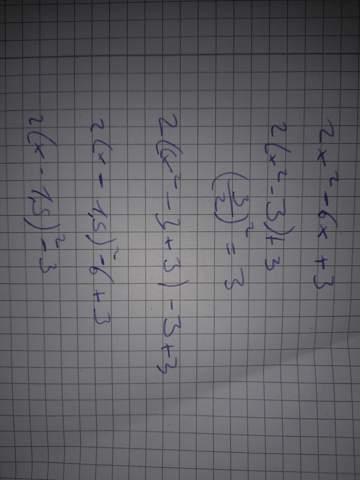 2x² - 6x + 3
2(x² - 3) + 3
(3/2)² = 3
2(x² - 3 + 3) - 3 + 3
2(x - 1,5)² - 6 + 3
2(x - 1,5)² - 3